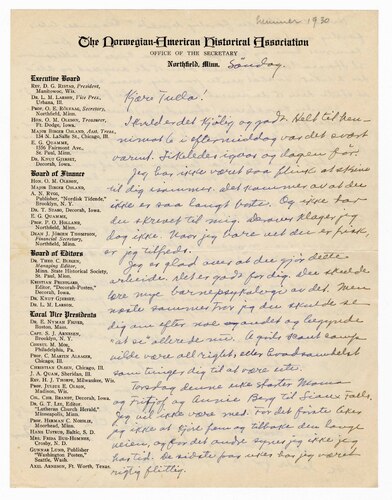 Summer 1930
The Norwegian-American Historical Association
OFFICE OF THE SECRETARY
Northfield, Minn. Søndag.
Executive Board
REV. D. G. RISTAD, President,
Manitowoc, Wis.
DR. L. M. LARSON, Vice Pres.,
Urbana, Ill.
PROF. O. E. RÖLVAAG, Secretary,
Northfield, Minn.
HON. O. M. OLESON, Treasurer,
Ft. Dodge, Iowa.
MAJOR BIRGER OSLAND, Asst. Treas.,
134 N. LaSalle St., Chicago, Ill.
E. G. QUAMME,
1356 Fairmont Ave.
St. Paul, Minn.
DR. KNUT GJERSET,
Decorah, Iowa.
Board of Finance
HON. O. M. OLESON,
MAJOR BIRGER OSLAND,
A. N. RYGG,
Publisher, "Nordisk Tidende,"
Brooklyn, N. Y.
DR. T. STABO, Decorah, Iowa.
E. G. QUAMME,
PROF. P. O. HOLLAND,
Northfield, Minn.
DEAN J. JÖRGEN THOMPSON,
Financial Secretary,
Northfield, Minn.
Board of Editors
DR. THEO. C. BLEGEN,
Managing Editor,
Minn. State Historical Society,
St. Paul, Minn.
KRISTIAN PRESTGARD,
Editor, "Decorah-Posten,"
Decorah, Iowa.
DR. KNUT GJERSET,
DR. L. M. LARSON.
Local Vice Presidents
DR. E. NYMAN FIGVED,
Boston, Mass.
CAPT. S. J. ARNESEN,
Brooklyn, N. Y.
CONSUL M. MOE,
Philadelphia, Pa.
PROF. C. MARTIN ALSAGER,
Chicago, Ill.
CHRISTIAN OLSEN, Chicago, Ill.
J. A. QUAM, Sheridan, Ill.
REV. H. J. THORPE, Milwaukee, Wis.
PROF. JULIUS E. OLSON,
Madison, Wis.
COL. CHR. BRANDT, Decorah, Iowa.
DR. G. T. LEE, Editor,
"Lutheran Church Herald,"
Minneapolis, Minn.
PROF. HERMAN C. NORDLIE,
Moorhead, Minn.
HANS USTRUD, Baltic, S. D.
MRS. FRIDA BUE-HOMNES,
Crosby, N. D.
GUNNAR LUND, Publisher
"Washington Posten,"
Seattle, Wash.
AXEL ARNESON, Ft. Worth, Texas.
Kjære Tulla!
I kveld er det kjølig og godt. Helt til
i eftermiddag var det svært
varmt. Likeledes igaar og dagen før.
Jeg har ikke været saa flink at skrive
til dig sommer. Det kommer av at du
ikke er saa langt borte. Og ikke har
du skrevet til mig. Derover klager jeg
dog ikke. Naar jeg bare vet du er frisk,
er jeg tilfreds.
Jeg er glad over at du gjør dette
arbeidet, det er godt for dig. Du skulde
lære mye barnepsykologi av det. Men
næste sommer tror jeg du skulde se
dig om efter noe andet og begynde
"at se" allerede nu. A girls' scout camp
vilde være all right, eller hvadsomhelst
som tvinger dig til at være ute.
Torsdag denne uke starter Mama
og og Annie Berg til Sioux Falls.
Jeg vil ikke være med. For det første liker
jeg ikke at kjøre frem og tilbake den lange
veien, og for det andre synes jeg ikke jeg
har tid. De sidste par uker har jeg været
rigtig flittig.